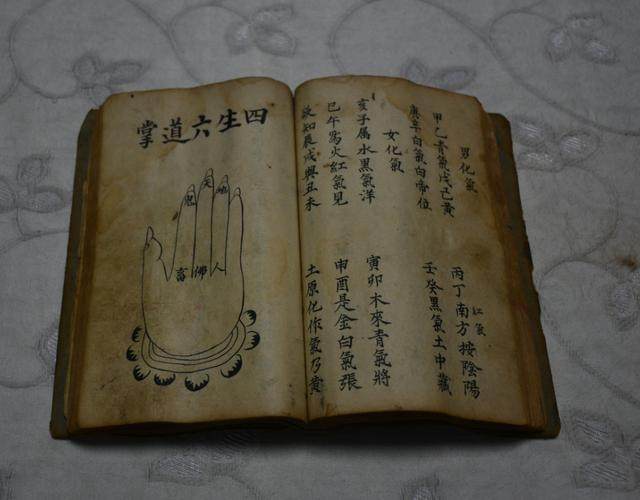 男化氣
甲乙青氣戊己黃
紅氣
丙丁南方按陰陽
庚辛白氣白帝位
壬癸黑氣土中藏
女化氣
亥子屬水黑氣洋
寅卯木來青氣將
巳午爲火紅氣見
申酉是金白氣張
欲知辰戌與丑未
土原化作氣乃黃
四生六道掌
地天鬼
人佛畜